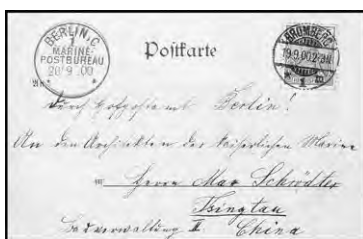 BERLIN, C.
1
MARINE-
POSTBUREAU
20 9 .00
Postkarte
BROMBERG
19.9.00.2-3N.
1
Durch Hofpostamt Berlin!
An den Architekten der Kaiserlichen Marine
Herrn Max Schrödter
Tsingtau
Bauverwaltung II China